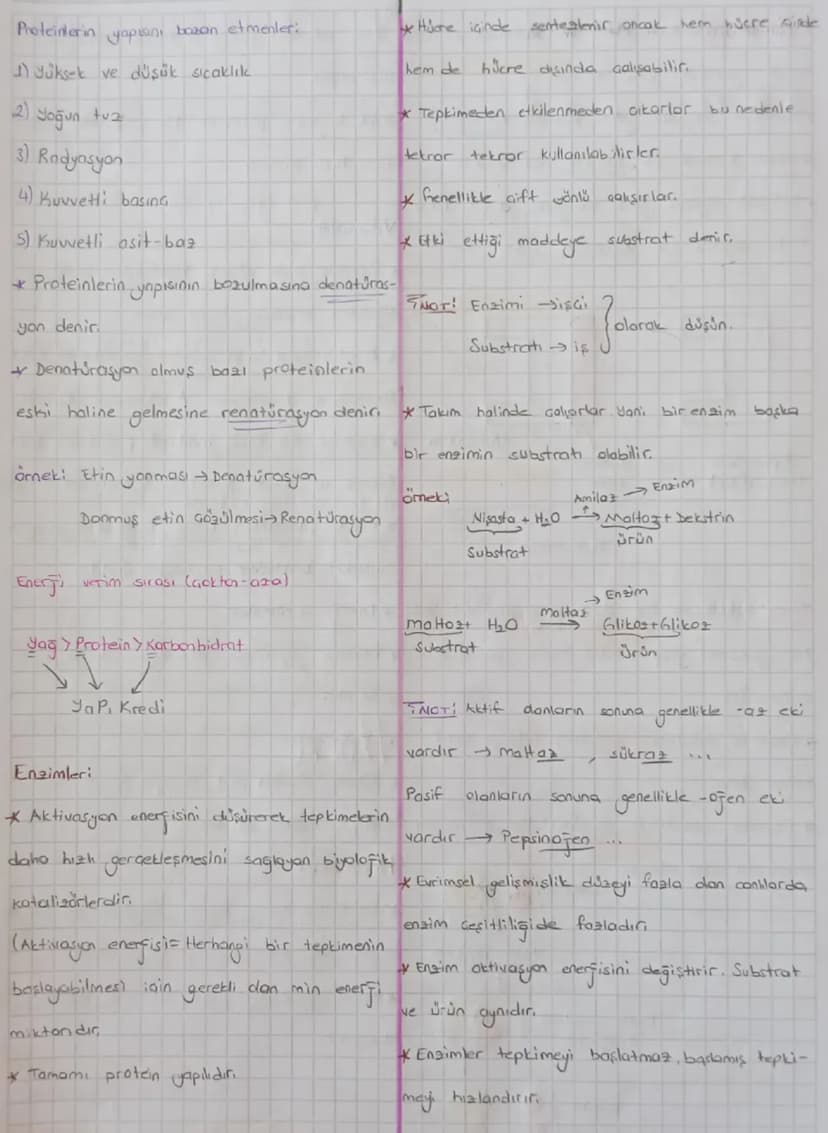 Proteinlerin yapısını bozan etmenler:
1) Yüksek ve düşük sıcaklık
2) Yoğun tuz
3) Radyasyon
4) Kuvvetli basınç
5) Kuvvetli asit-baz
* Proteinlerin yapısının bozulmasına denatüras-
yon denir.
* Denatürasyon olmuş bazı proteinlerin
eski haline gelmesine renatürasyon denir.
örnek: Etin yanması → Denatürasyon
Donmuş etin çözülmesi → Renatürasyon
Enerji verim sırası (çoktan-aza)
Yağ > Protein > Karbonhidrat
YaPı Kredi
Enzimler:
* Aktivasyon enerjisini düşürerek tepkimelerin
daha hızlı gerçekleşmesini sağlayan biyolojik
katalizörlerdir.
(Aktivasyon enerjisi = Herhangi bir tepkimenin
başlayabilmesi için gerekli olan min enerji
miktarıdır.
* Tamamı protein yapılıdır.
* Hücre içinde sentezlenir ancak hem hücre içinde
hem de hücre dışında çalışabilir.
* Tepkimeden etkilenmeden çıkarlar bu nedenle
tekrar tekrar kullanılabilirler.
* Genellikle çift yönlü çalışırlar.
* Etki ettiği maddeye substrat denir.
NOT! Enzimi → işçi
olarak düşün.
Substratı → iş
* Takım halinde çalışırlar. Yani bir enzim başka
bir enzimin substratı olabilir.
örnek:
Amilaz → Enzim
Nişasta + H2O → Maltoz + Dekstrin
Substrat
ürün
Maltaz → Enzim
Maltoz + H2O → Glikoz + Glikoz
Substrat
ürün
NOT! Aktif olanların sonuna genellikle -az eki
vardır → maltaz, sükraz ...
Pasif olanların sonuna genellikle -ojen eki
vardır → Pepsinojen ...
* Evrimsel gelişmişlik düzeyi fazla olan canlılarda
enzim çeşitliliği de fazladır.
* Enzim aktivasyon enerjisini değiştirir. Substrat
ve ürün aynıdır.
* Enzimler tepkimeyi başlatmaz, başlamış tepki-
meyi hızlandırır.